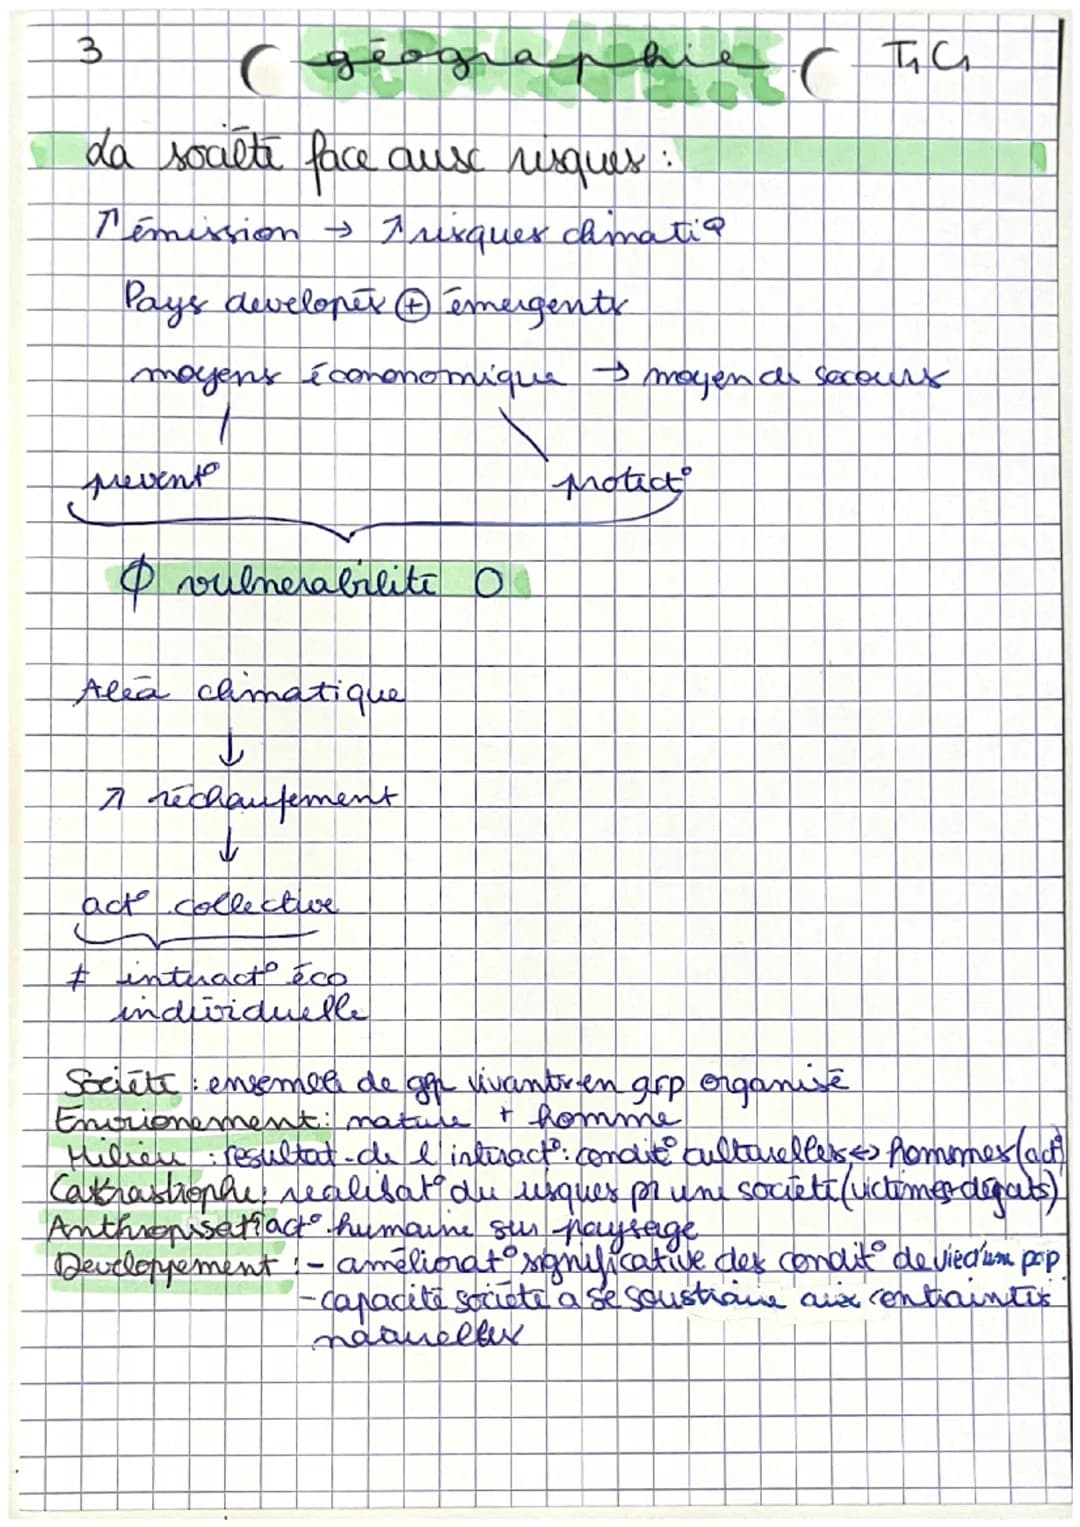 3 géographie T1 C1
La société face aux risques :
↗ émission → ↗ risques climatiq
Pays developés ⊕ émergents
moyens écononomique → moyen de secours
prevent° protect°
∅ vulnerabilité O
Aléa climatique
↓
↗ réchaufement
↓
act° collective
≠ interact° éco
individuelle
Société : ensemble de grp vivants en grp organisé
Envrionement : nature + homme
Milieu : résultat de l'interact° : condit° culturelles ↔ hommes (act°)
Catrastrophe : realisat° du risques pr une société (victimes dégats)
Anthropisat° act° humaine sur paysage
Developpement : - améliorat° significative des condit° de vie d'une pop
- capacité société a se soustraire aux contraintes
naturelles